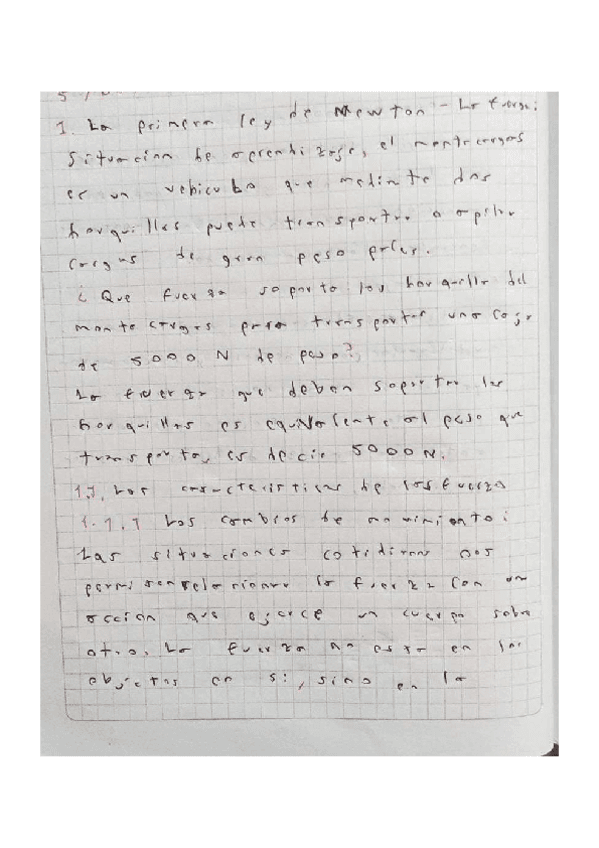 1. La primera ley de Newton - La fuerza:
Situación de aprendizaje, el montacargas
es un vehiculo que mediante dos
horquillas puede transportar o apilar
cargas de gran peso
¿Que fuerza soporta las horquilla del
montacargas para transportar una caja
de 5000 N de peso?
La fuerza que deben soportar las
horquillas es equivalente al peso que
transporta, es decir 5000 N.
1.1. Las características de las fuerza
1.1.1 Los cambios de movimiento:
Las situaciones cotidianas nos
permiten relacionar la fuerza con una
acción que ejerce un cuerpo sobre
otro. La fuerza no esta en los
objetos en si, sino en la